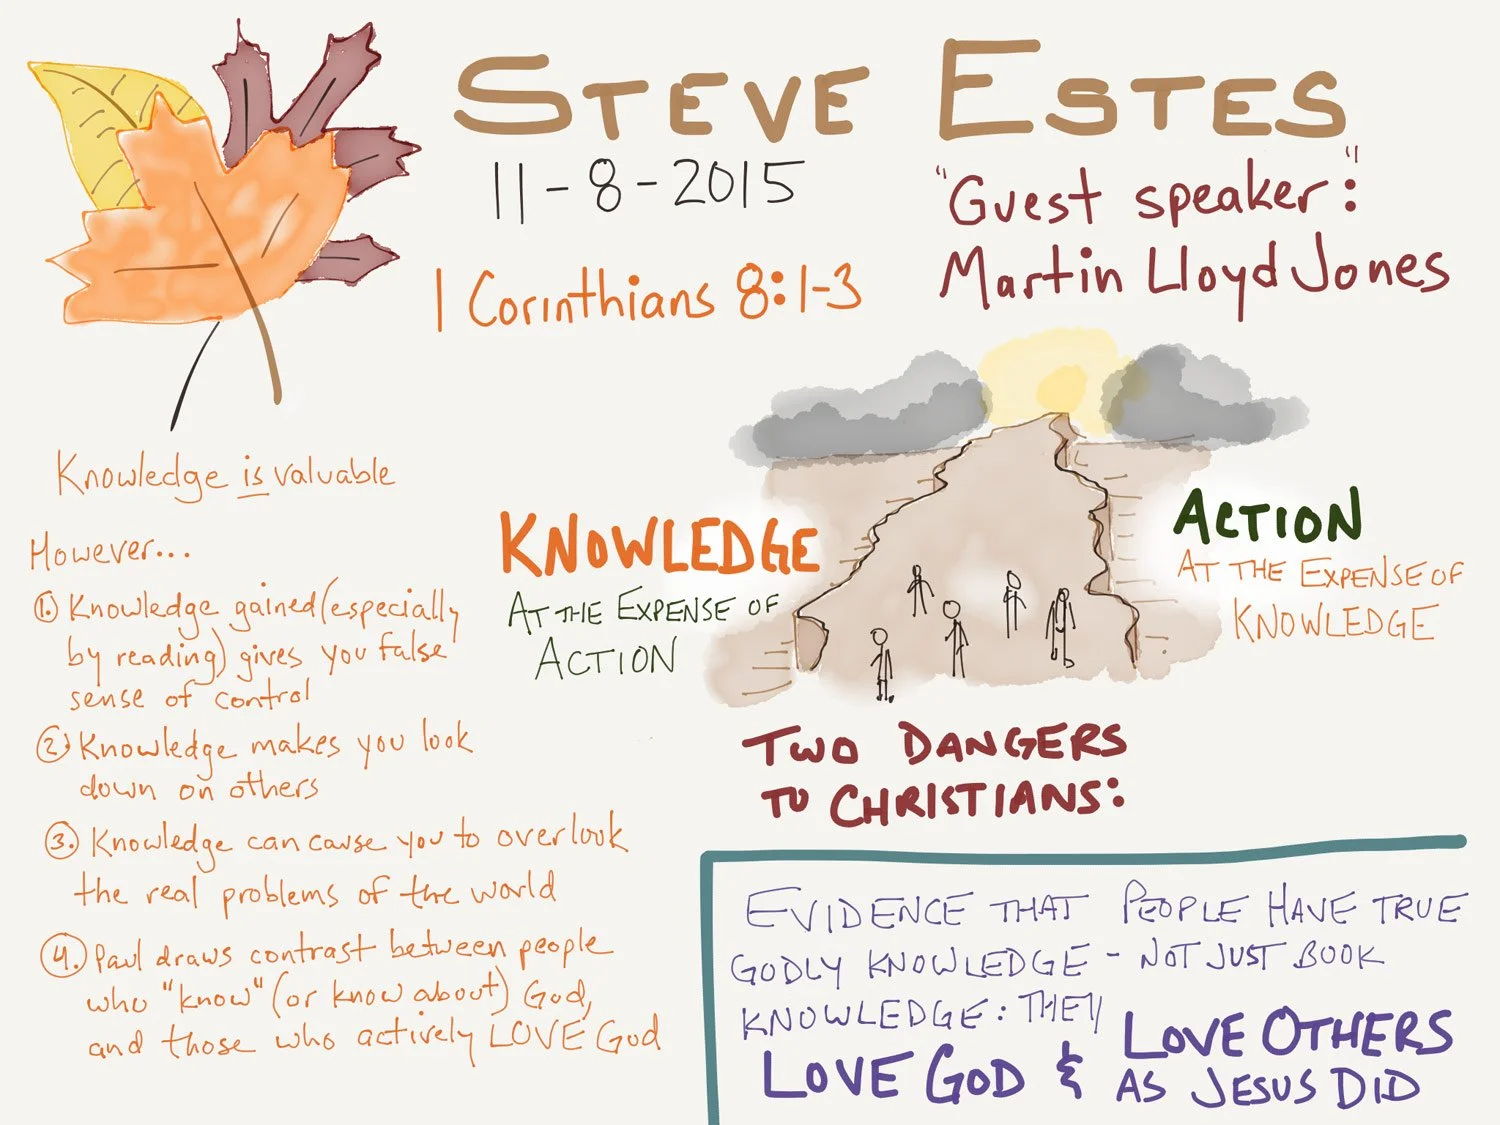 STEVE ESTES
11-8-2015
"Guest speaker:"
Martin Lloyd Jones
1 Corinthians 8:1-3
Knowledge is valuable
However...
1. Knowledge gained (especially
by reading) gives you false
sense of control
2. Knowledge makes you look
down on others
3. Knowledge can cause you to overlook
the real problems of the world
4. Paul draws contrast between people
who "know" (or know about) God,
and those who actively LOVE God
KNOWLEDGE
AT THE EXPENSE OF
ACTION
ACTION
AT THE EXPENSE OF
KNOWLEDGE
TWO DANGERS
TO CHRISTIANS:
EVIDENCE THAT PEOPLE HAVE TRUE
GODLY KNOWLEDGE - NOT JUST BOOK
KNOWLEDGE: THEY
LOVE GOD & LOVE OTHERS
AS JESUS DID